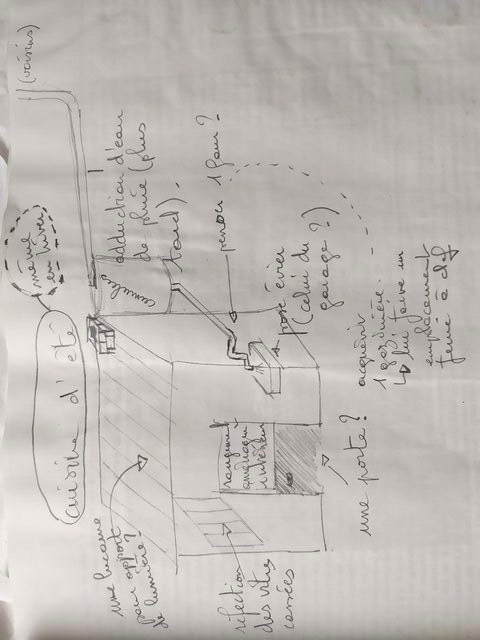 cuisine d'été
même
en hiver
(voisins)
adduction d'eau
de pluie (plus
tard).
cumulus
percer 1 four ?
pose évier
(celui du
garage ?)
acquérir
1 gazinière.
↳ lui faire un
emplacement
fermé à clef
une lucarne
pour apport
de lumière ?
réfection
des vitres
cassées
rangement
aménagé
intérieur
une porte ?